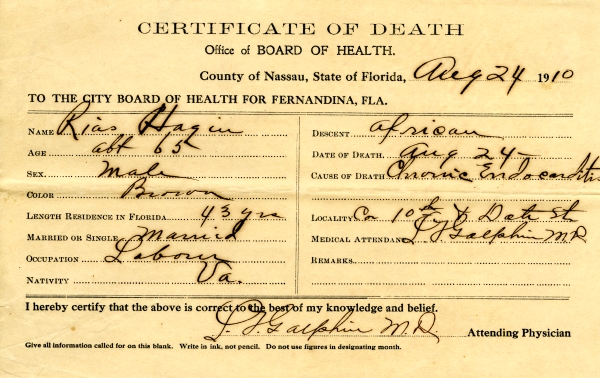 CERTIFICATE OF DEATH
Office of BOARD OF HEALTH.
County of Nassau, State of Florida, Aug 24 1910
TO THE CITY BOARD OF HEALTH FOR FERNANDINA, FLA.
NAME Rias Hagin
AGE abt 65
SEX. Male
COLOR Brown
LENGTH RESIDENCE IN FLORIDA 43 yrs
MARRIED OR SINGLE Married
OCCUPATION Labour
NATIVITY Va.
DESCENT African
DATE OF DEATH Aug 24
CAUSE OF DEATH Chronic Endocarditis
LOCALITY Co 10th & Date St.
MEDICAL ATTENDANT Galphin MD
REMARKS
I hereby certify that the above is correct to the best of my knowledge and belief.
Galphin M.D. Attending Physician
Give all information called for on this blank. Write in ink, not pencil. Do not use figures in designating month.